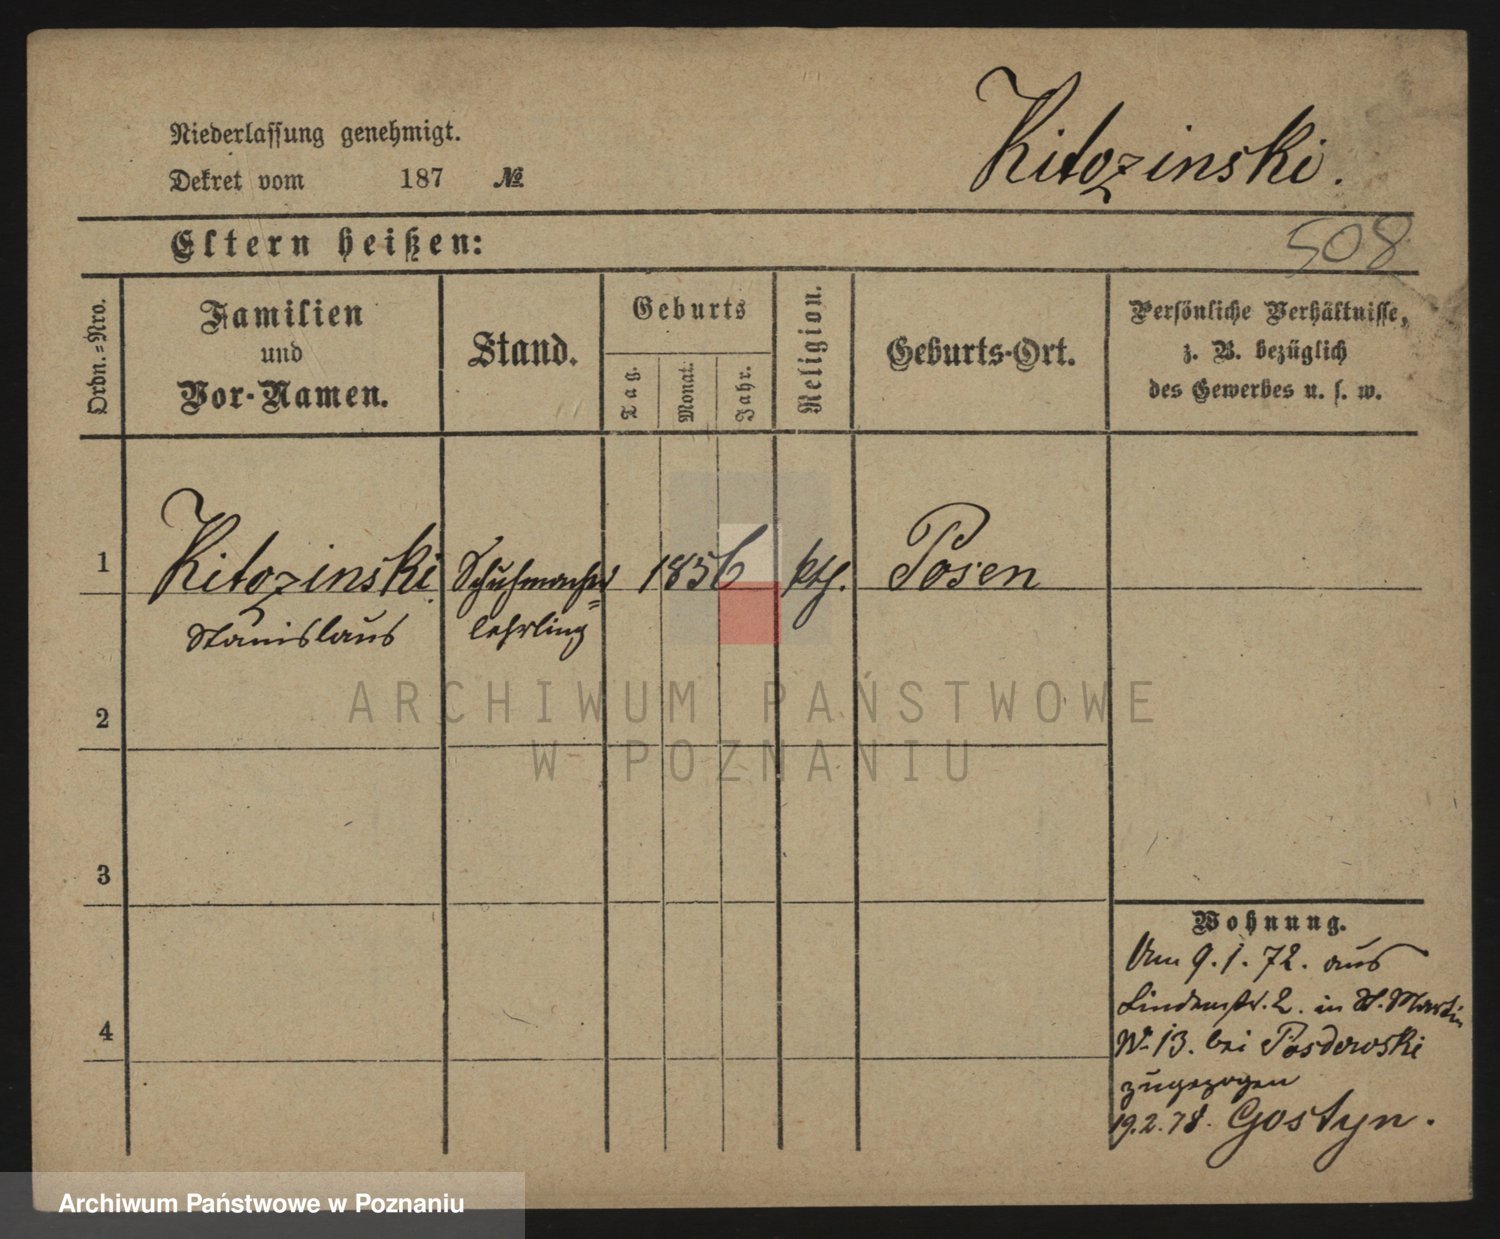 Kitozinski.
Niederlassung genehmigt.
Dekret vom 187 №
Eltern heißen:
508
Ordn.=Nro.
Familien
und
Vor-Namen.
Stand.
Geburts
Tag.
Monat.
Jahr.
Religion.
Geburts-Ort.
Persönliche Verhältnisse,
z. B. bezüglich
des Gewerbes u. s. w.
1
Kitozinski
Stanislaus
Schuhmacher=
lehrling
1856
kth.
Posen
2
3
4
Wohnung.
Am 9.1.72. aus
Lindenstr. 2. in St. Martin
No 13. bei Posdowski
zugezogen
19.2.78. Gostyn.
ARCHIWUM PAŃSTWOWE
W POZNANIU
Archiwum Państwowe w Poznaniu